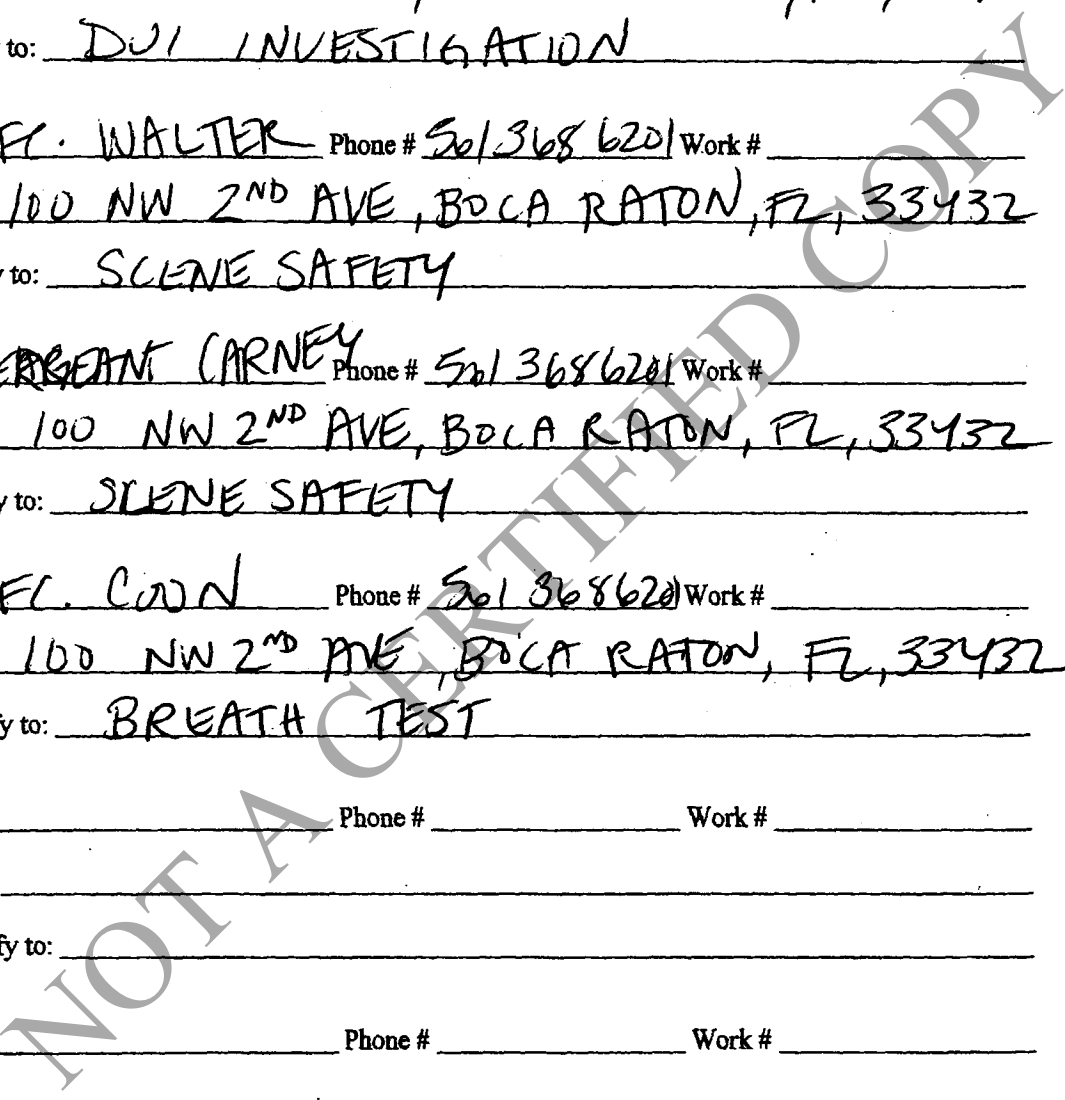 to: DUI INVESTIGATION
WALTER Phone # 561 368 6201 Work #
100 NW 2ND AVE, BOCA RATON, FL, 33432
to: SCENE SAFETY
CARNEY Phone # 561 368 6201 Work #
100 NW 2ND AVE, BOCA RATON, FL, 33432
to: SCENE SAFETY
COON Phone # 561 368 6201 Work #
100 NW 2ND AVE, BOCA RATON, FL, 33432
fy to: BREATH TEST
Phone # Work #
fy to:
Phone # Work #
NOT A CERTIFIED COPY